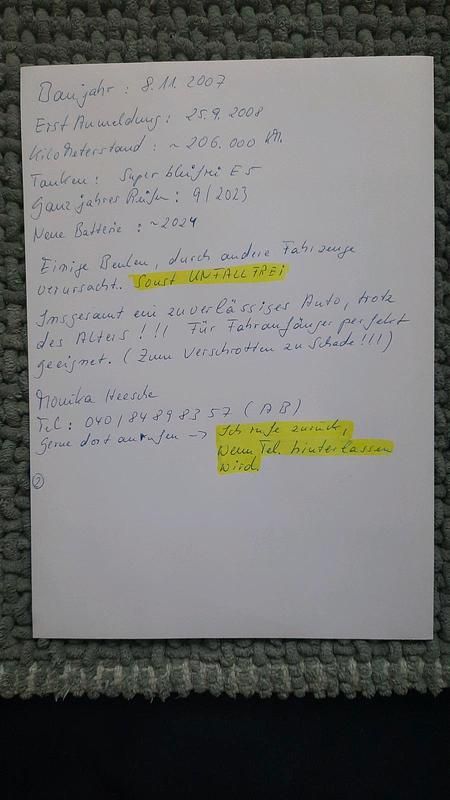 Baujahr : 8.11.2007
Erst Anmeldung : 25.9.2008
Kilo Meterstand : ~ 206.000 KM.
Tanken : Super bleifrei E5
Ganzjahres Reifen : 9/2023
Neue Batterie : ~ 2024
Einige Beulen, durch andere Fahrzeuge
verursacht. Sonst UNFALLFREI
Insgesamt ein zuverlässiges Auto, trotz
des Alters !!! Für Fahranfänger perfekt
geeignet. (Zum Verschrotten zu Schade !!!)
Monika Heesche
Tel : 040 / 84 89 83 57 (AB)
Gerne dort anrufen -> Ich rufe zurück,
wenn Tel. hinterlassen
wird.
2